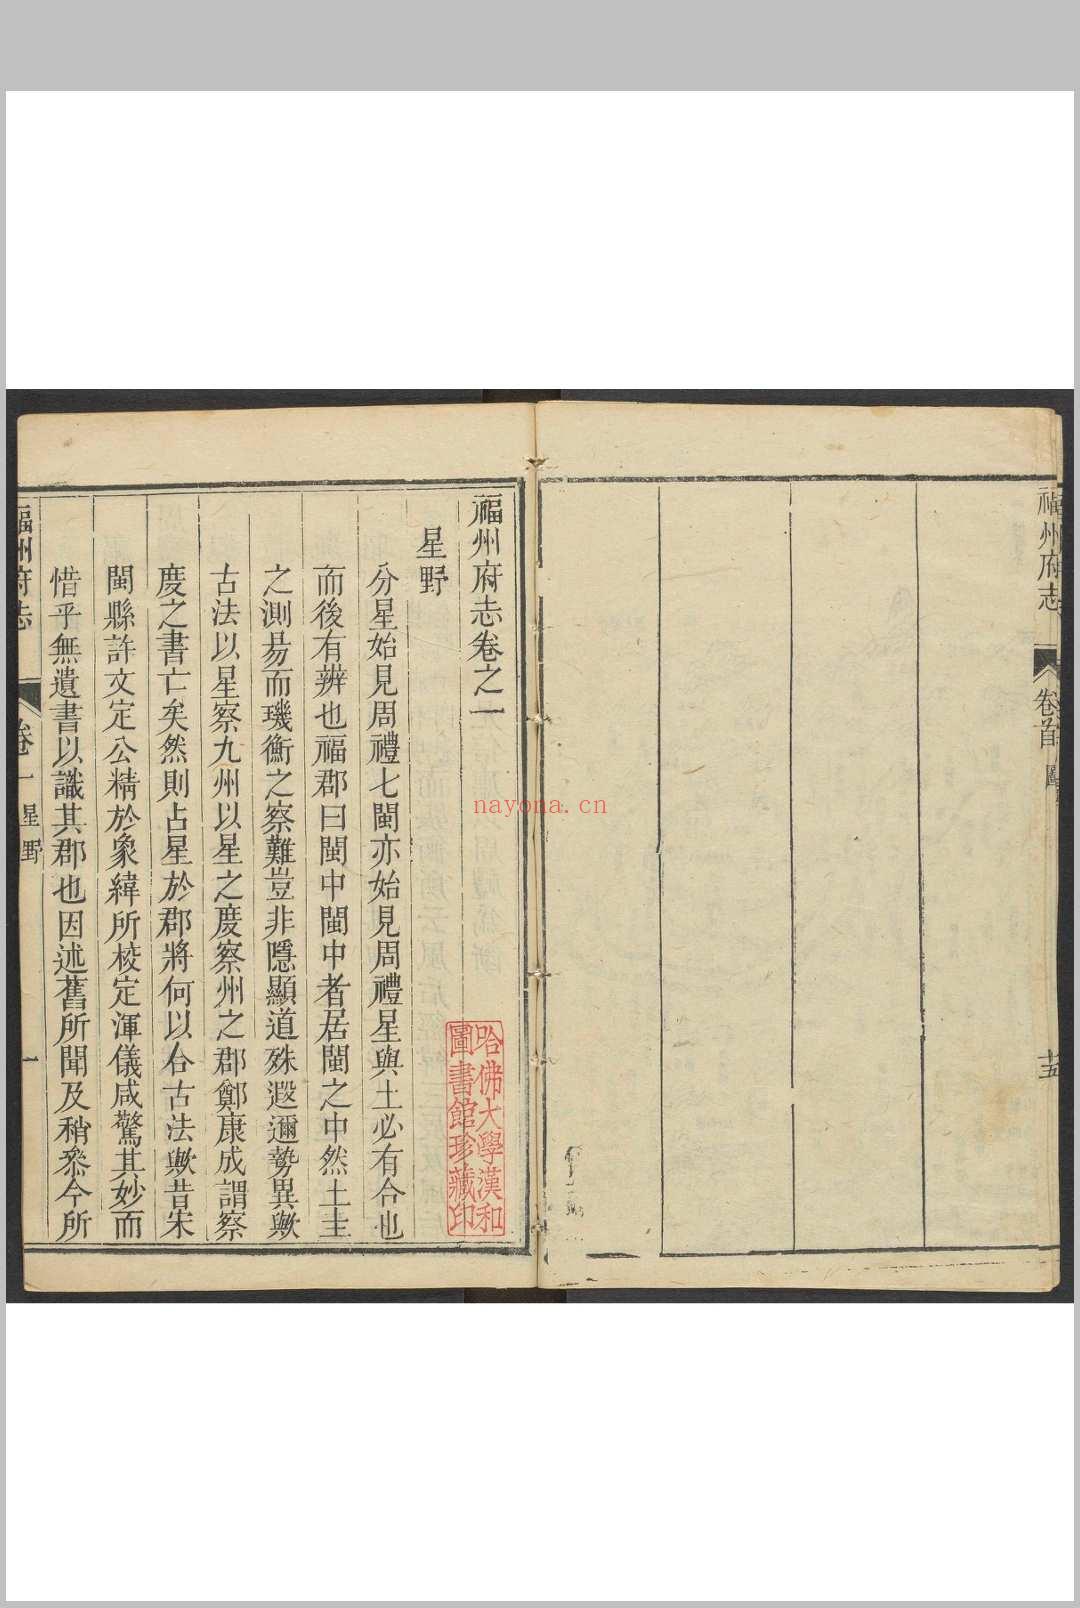 福州府志
卷首
圖
十五
福州府志卷之一
星野
分星始見周禮七閩亦始見周禮星與土必有合也
而後有辨也福郡曰閩中閩中者居閩之中然土圭
之測易而璣衡之察難豈非隱顯道殊遐邇勢異歟
古法以星察九州以星之度察州之郡鄭康成謂察
度之書亡矣然則占星於郡將何以合古法歟昔宋
閩縣許文定公精於象緯所校定渾儀咸驚其妙而
惜乎無遺書以識其郡也因述舊所聞及稍叅今所
福州府志
卷一
星野
一
哈佛大學漢和
圖書館珍藏印
nayona.cn